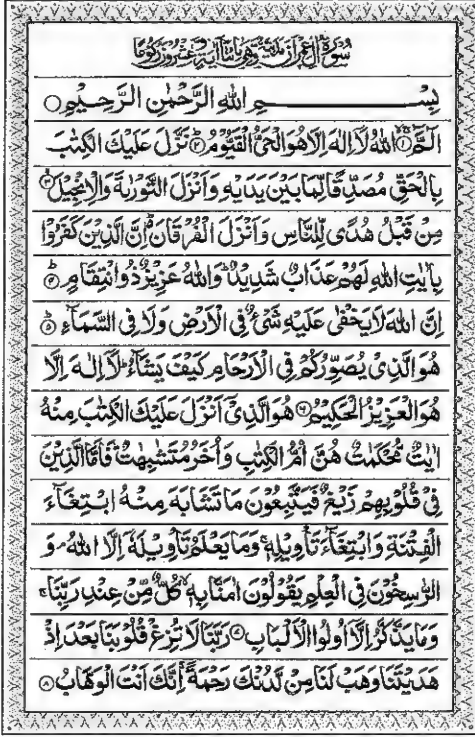 سُوْرَةُ اٰلِ عِمْرَانَ مَدَنِيَّةٌ وَّهِيَ مِائَتَا اٰيَةٍ وَّعِشْرُوْنَ رُكُوْعًا
بِسْمِ اللهِ الرَّحْمٰنِ الرَّحِيْمِ
الٓمّٓ ۝۱ اللهُ لَآ اِلٰهَ اِلَّا هُوَ الْحَيُّ الْقَيُّوْمُ ۝۲ نَزَّلَ عَلَيْكَ الْكِتٰبَ
بِالْحَقِّ مُصَدِّقًا لِّمَا بَيْنَ يَدَيْهِ وَاَنْزَلَ التَّوْرٰىةَ وَالْاِنْجِيْلَ ۝۳
مِنْ قَبْلُ هُدًى لِّلنَّاسِ وَاَنْزَلَ الْفُرْقَانَ ؕ اِنَّ الَّذِيْنَ كَفَرُوْا
بِاٰيٰتِ اللهِ لَهُمْ عَذَابٌ شَدِيْدٌ ؕ وَاللهُ عَزِيْزٌ ذُو انْتِقَامٍ ۝۴
اِنَّ اللهَ لَا يَخْفٰى عَلَيْهِ شَيْءٌ فِى الْاَرْضِ وَلَا فِى السَّمَآءِ ۝۵
هُوَ الَّذِيْ يُصَوِّرُكُمْ فِى الْاَرْحَامِ كَيْفَ يَشَآءُ ؕ لَآ اِلٰهَ اِلَّا
هُوَ الْعَزِيْزُ الْحَكِيْمُ ۝۶ هُوَ الَّذِيْٓ اَنْزَلَ عَلَيْكَ الْكِتٰبَ مِنْهُ
اٰيٰتٌ مُّحْكَمٰتٌ هُنَّ اُمُّ الْكِتٰبِ وَاُخَرُ مُتَشٰبِهٰتٌ ؕ فَاَمَّا الَّذِيْنَ
فِيْ قُلُوْبِهِمْ زَيْغٌ فَيَتَّبِعُوْنَ مَا تَشَابَهَ مِنْهُ ابْتِغَآءَ
الْفِتْنَةِ وَابْتِغَآءَ تَاْوِيْلِهٖ ۚ وَمَا يَعْلَمُ تَاْوِيْلَهٗٓ اِلَّا اللهُ ۘ وَ
الرّٰسِخُوْنَ فِى الْعِلْمِ يَقُوْلُوْنَ اٰمَنَّا بِهٖ ۙ كُلٌّ مِّنْ عِنْدِ رَبِّنَا ۚ
وَمَا يَذَّكَّرُ اِلَّآ اُولُوا الْاَلْبَابِ ۝۷ رَبَّنَا لَا تُزِغْ قُلُوْبَنَا بَعْدَ اِذْ
هَدَيْتَنَا وَهَبْ لَنَا مِنْ لَّدُنْكَ رَحْمَةً ۚ اِنَّكَ اَنْتَ الْوَهَّابُ ۝۸